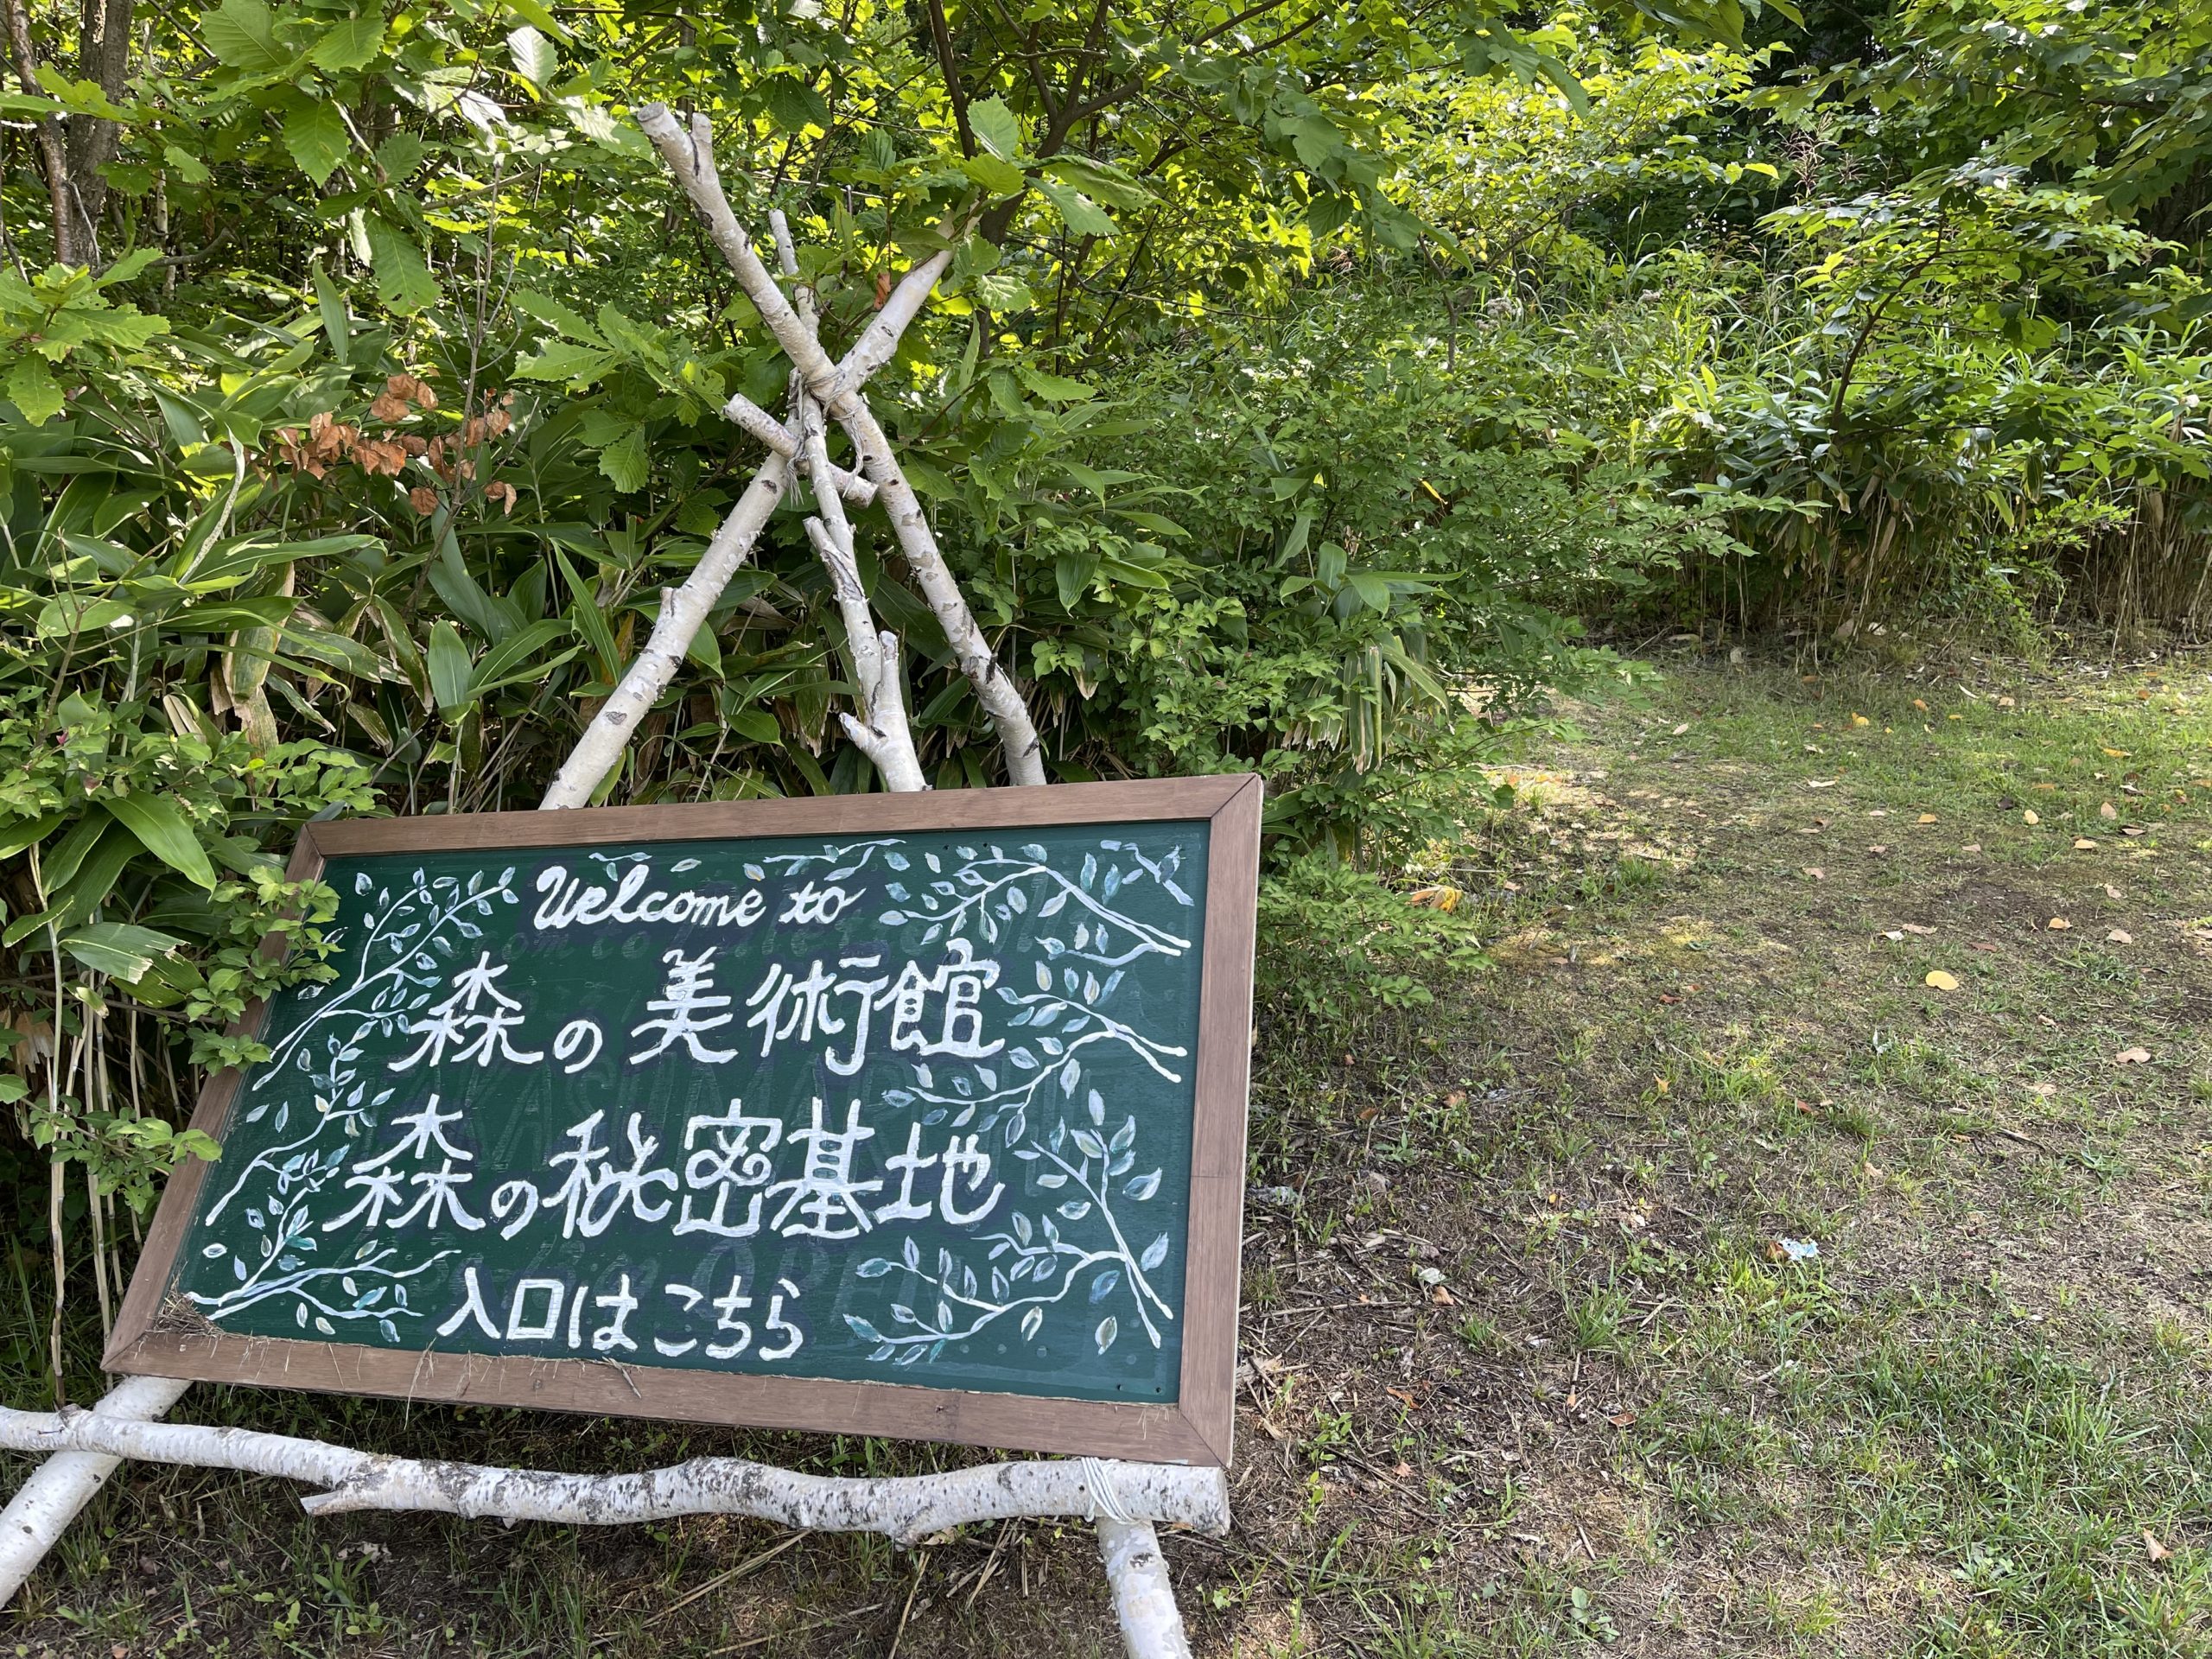 Welcome to
森の美術館
森の秘密基地
入口はこちら